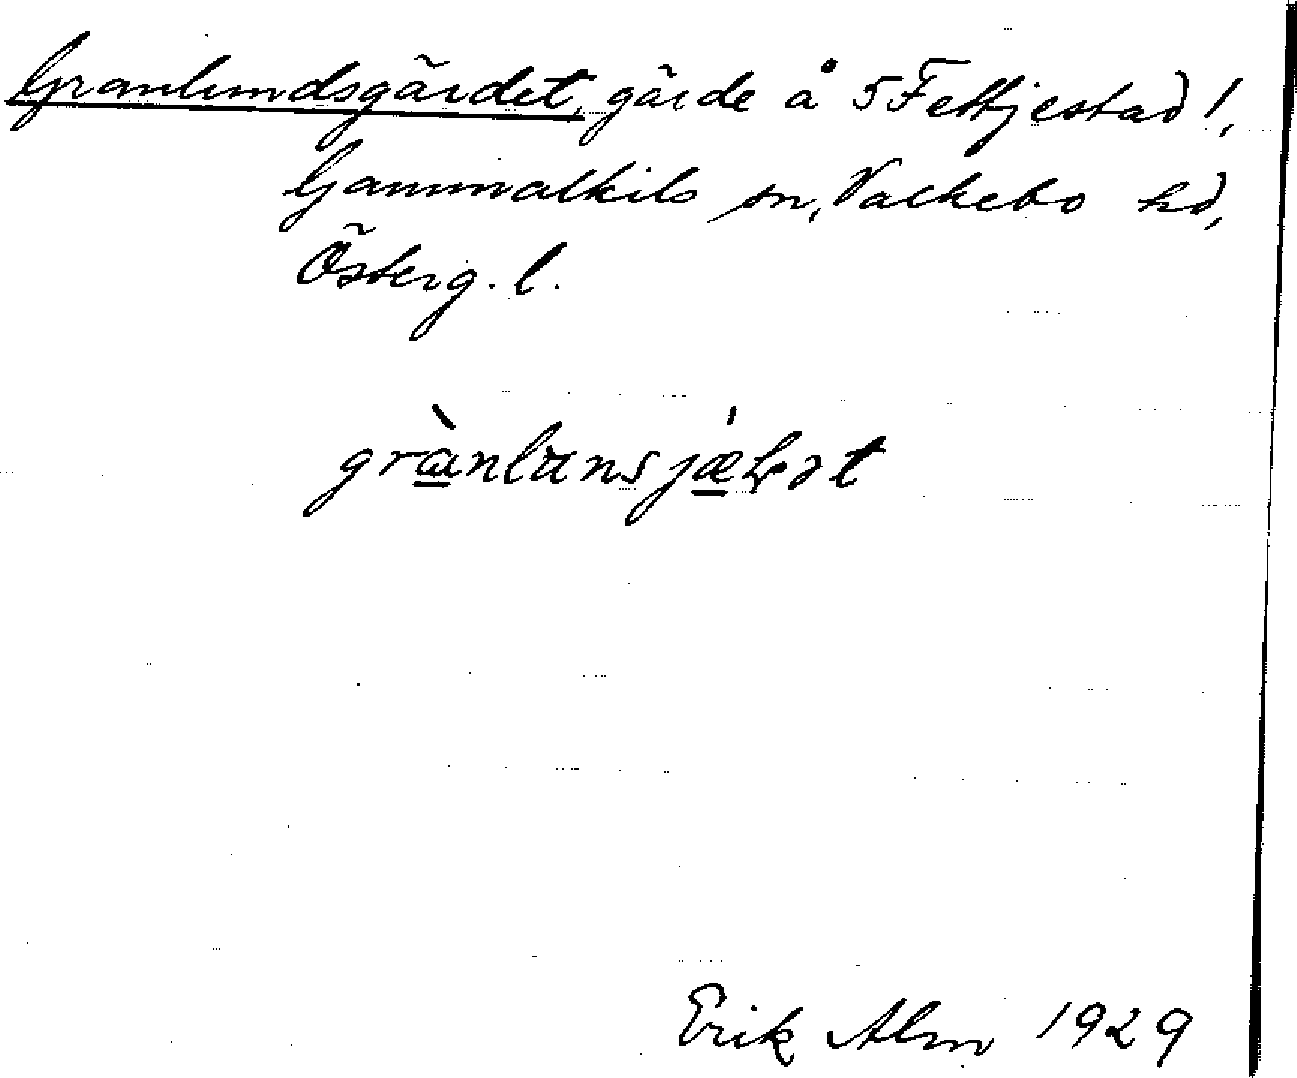 Granlundsgärdet, gärde å 5 Fettjestad 1,
Gammalkils sn, Valkebo hd,
Österg. l.
Erik Alm 1929